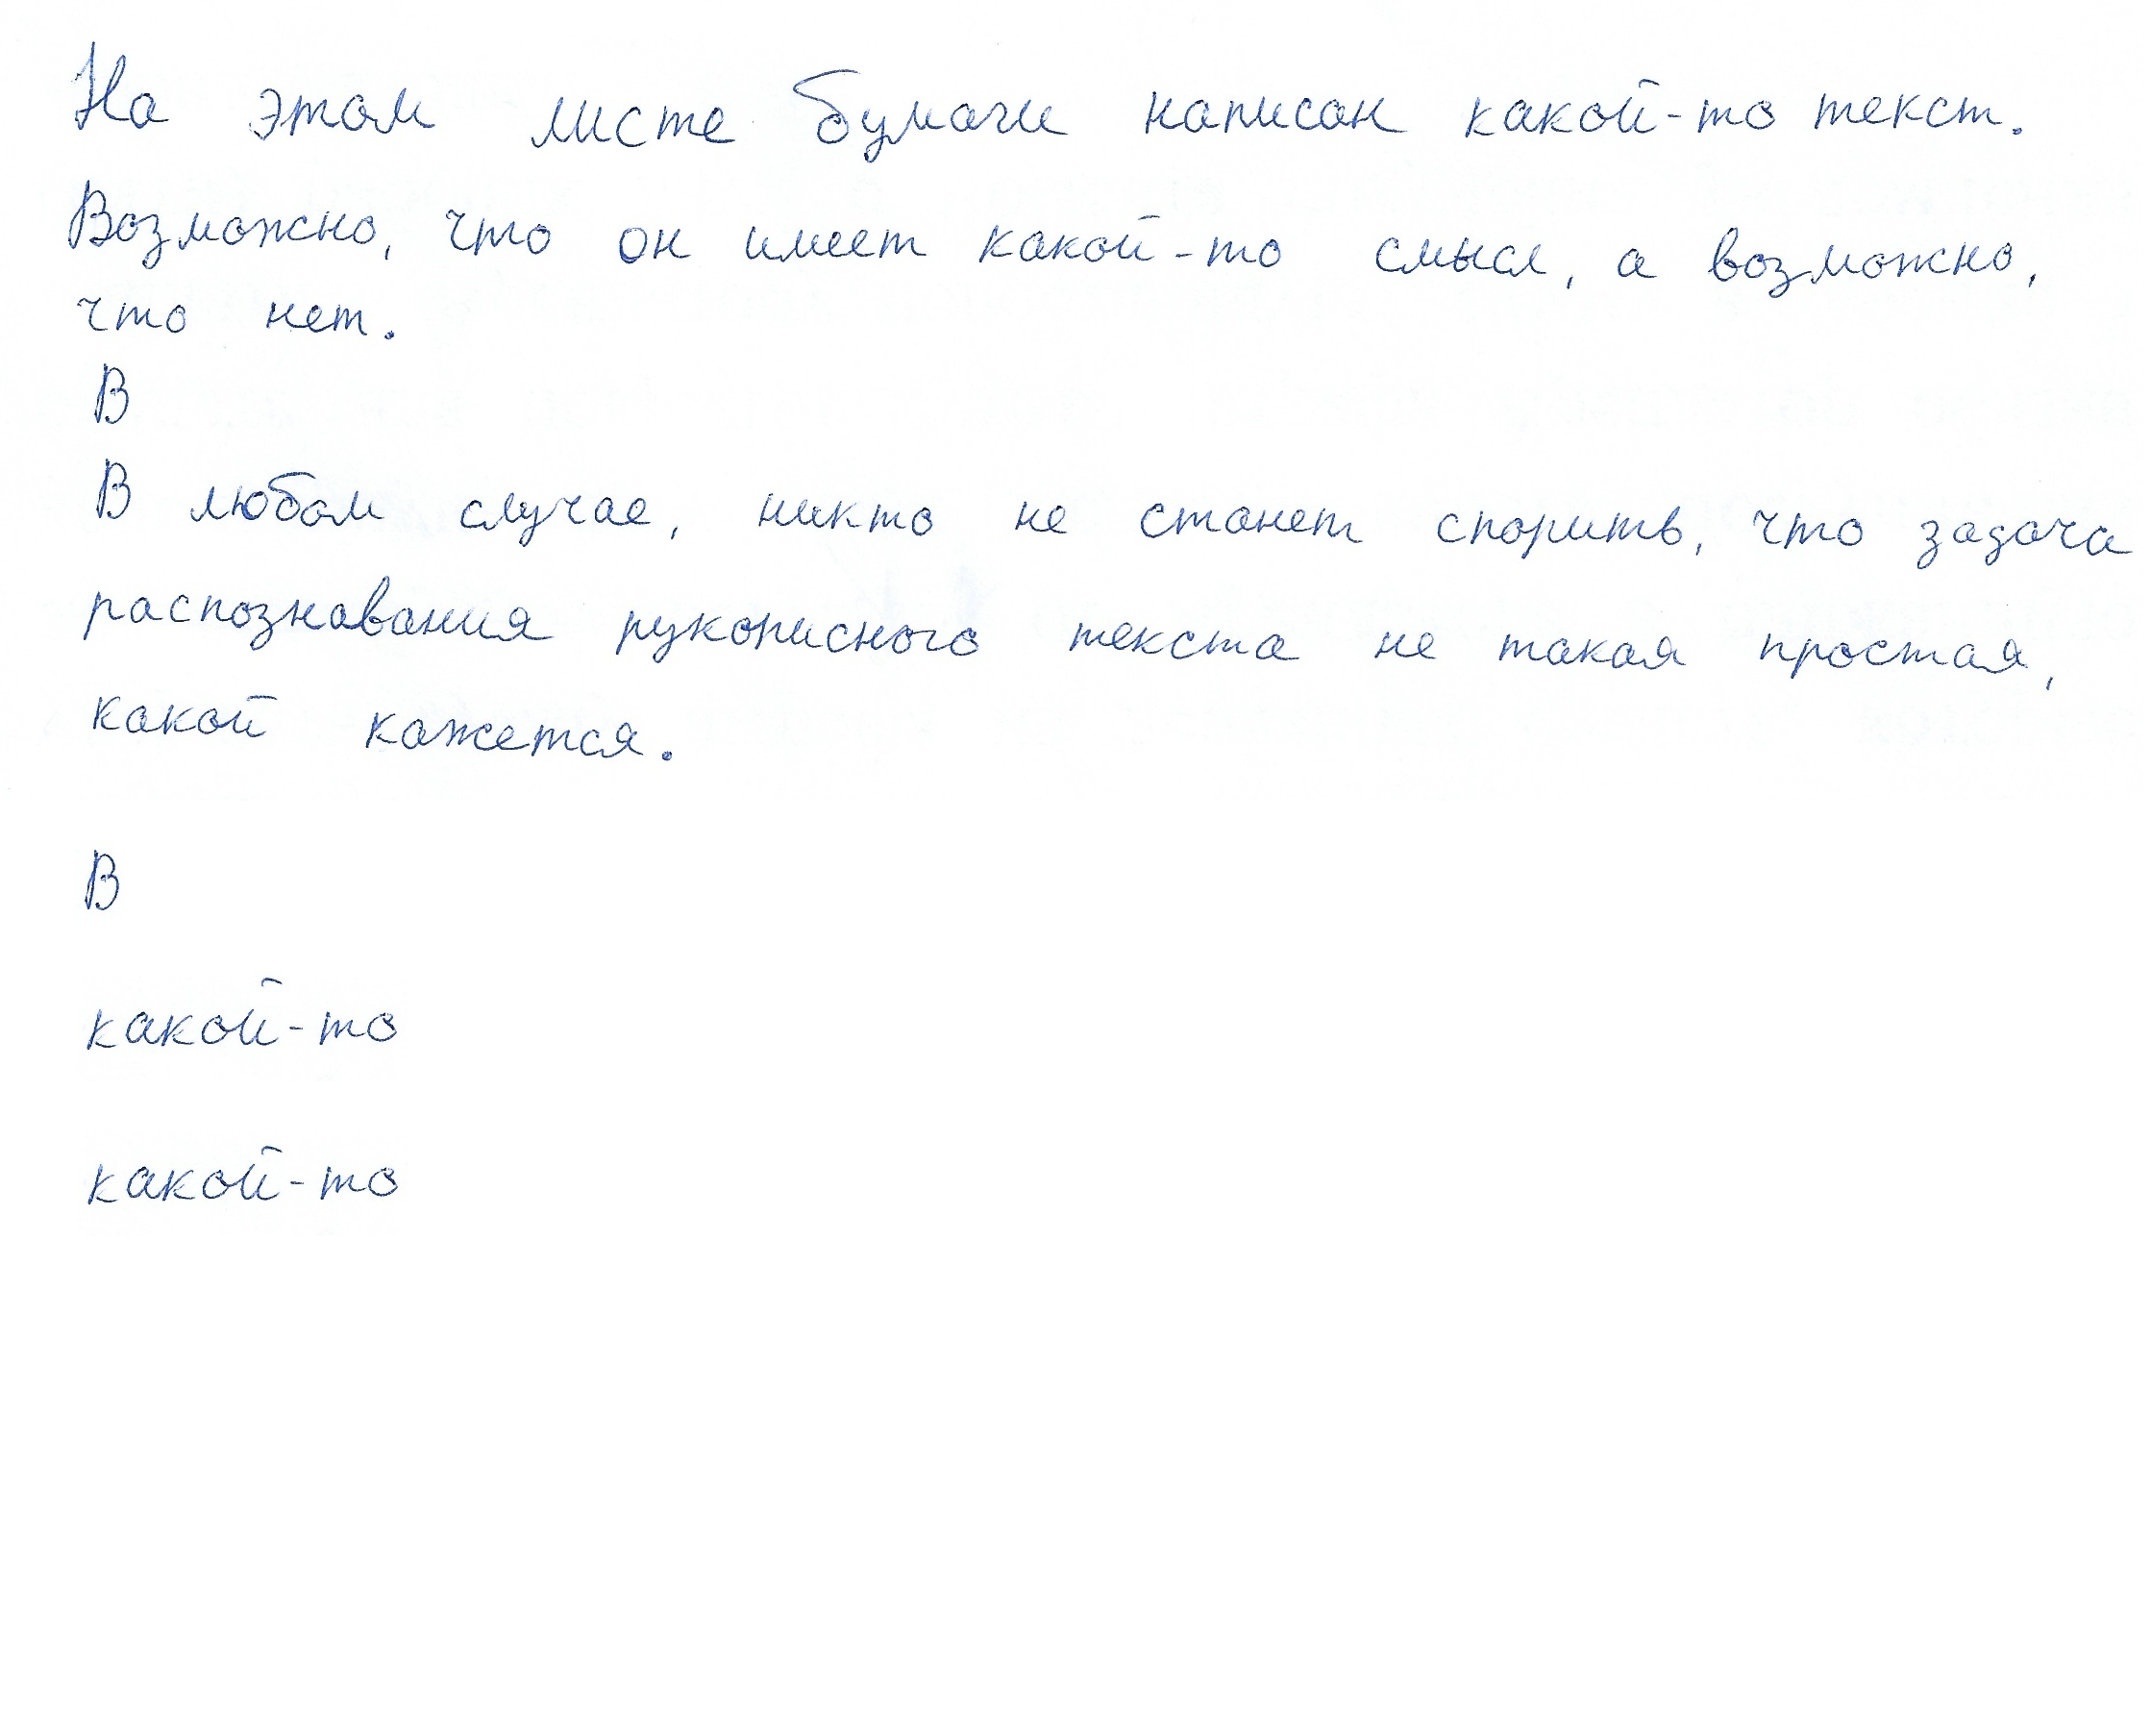 На этом листе бумаги написан какой-то текст.
Возможно, что он имеет какой-то смысл, а возможно,
что нет.
В
В любом случае, никто не станет спорить, что задача
распознавания рукописного текста не такая простая,
какой кажется.
В
какой-то
какой-то